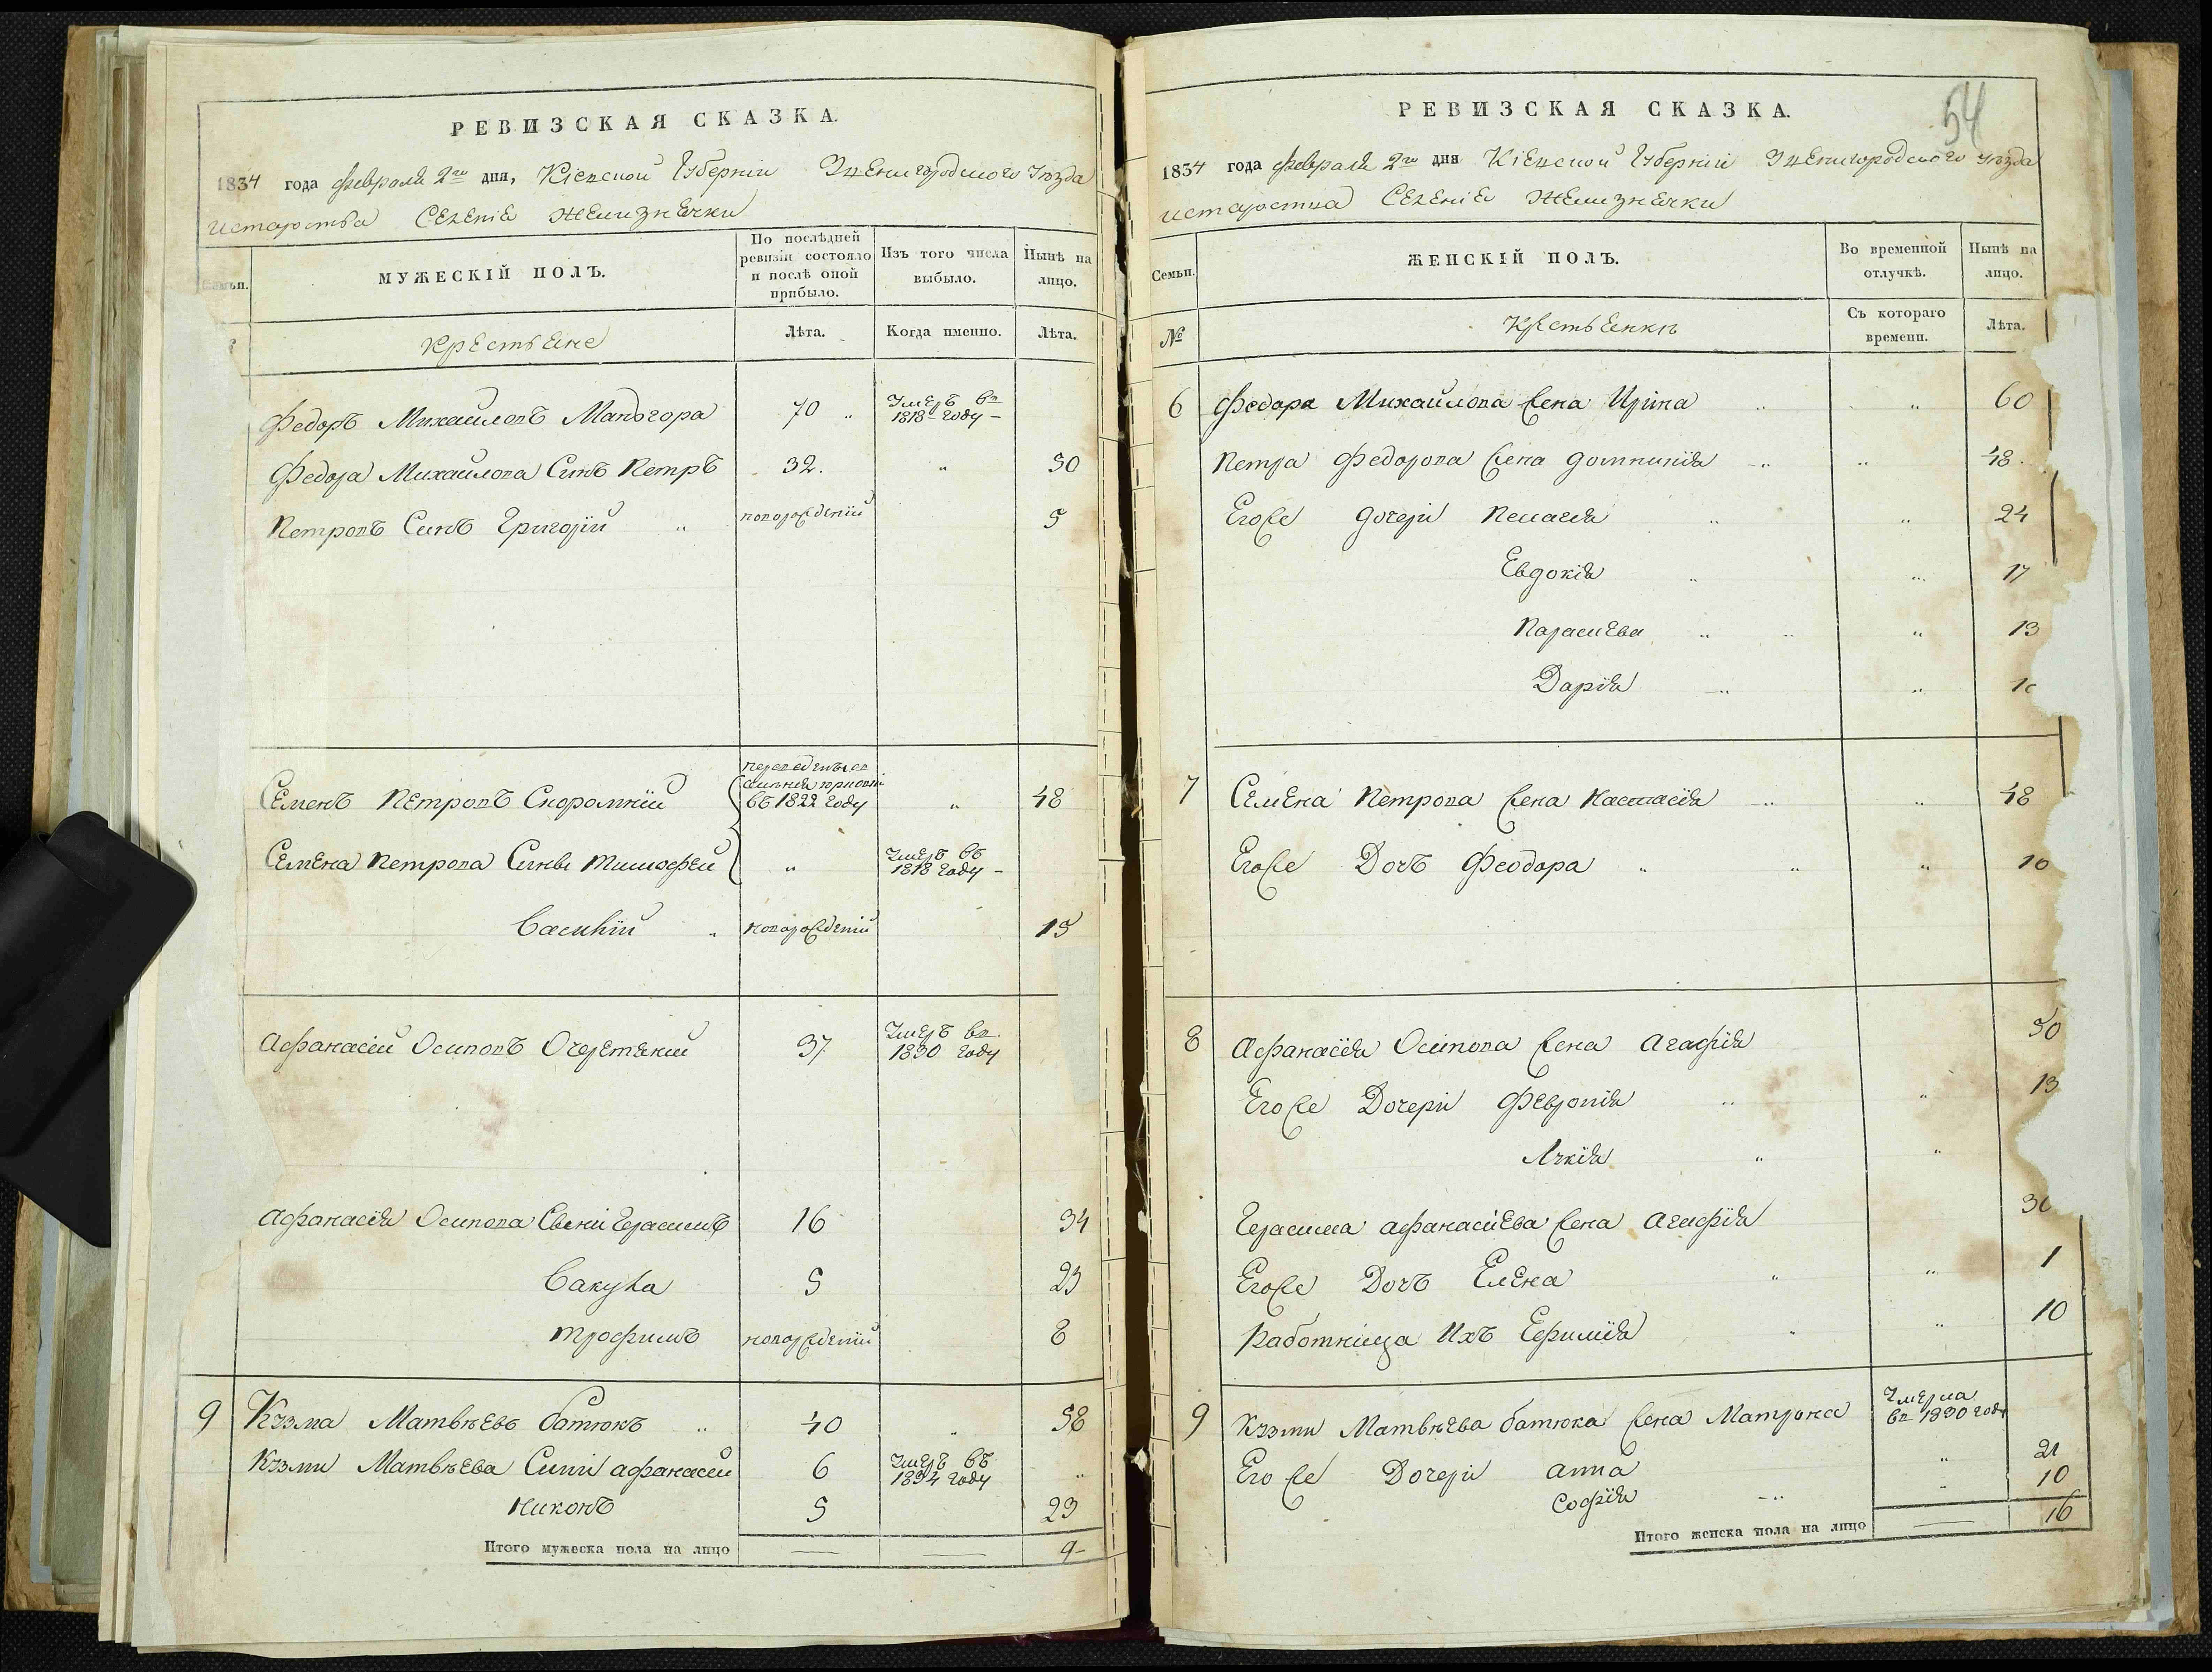 РЕВИЗСКАЯ СКАЗКА.
1834 года февраля 2го дня, Кіевской Губерніи Звенигородского Уѣзда
истароства Селеніе Желизнячки
Семьи.
МУЖЕСКІЙ ПОЛЪ.
По послѣдней ревизіи состояло и послѣ оной прибыло.
Изъ того числа выбыло.
Нынѣ на лицо.
Крестьяне
Лѣта.
Когда именно.
Лѣта.
Федоръ Михайловъ Мандогора 70 Умеръ въ 1818 году
Федора Михайлова Синъ Петръ 32. 50
Петровъ Синъ Григорій новорожденій 5
Семенъ Петровъ Скоромній въ 1822 году 48
Семена Петрова Сины Тимофей Умеръ въ 1818 году
Василій новорожденій 15
Афанасій Осиповъ Очеретяний 37 Умеръ въ 1830 году
Афанасія Осипова Сыни Герасимъ 16 34
Вакула 5 23
Трофимъ новорожденій 8
9 Кузма Матвѣевъ батюкъ 40 58
Кузми Матвѣева Сини афанасей 6 Умеръ въ 1834 году
Никонъ 5 23
Итого мужеска пола на лицо 9
54
РЕВИЗСКАЯ СКАЗКА.
1834 года февраля 2го дня Кіевской Губерніи Звенигородского уѣзда
истароства Селеніе Желизнячки
Семьи.
ЖЕНСКІЙ ПОЛЪ.
Во временной отлучкѣ.
Нынѣ на лицо.
№
Крестьянкѣ
Съ котораго времени.
Лѣта.
6 Федора Михайлова жена Ирина 60
Петра Федорова жена Домникія 48
Егоже дочери Пелагія 24
Евдокія 17
Параскева 13
Дарія
7 Семена Петрова жена Настасія 48
Егоже Дочъ Феодора 10
8 Афанасія Осипова жена Агафія 50
Егоже Дочери Февронія 13
Лукія
Герасима афанасіева жена Агафія
Егоже Дочъ Елена 1
Работница Ихъ Ефимія 10
9 Кузми Матвѣева батюка жена Матрона Умерла въ 1830 году
Егоже Дочери анна 21
Софія 10
Итого женска пола на лицо 16